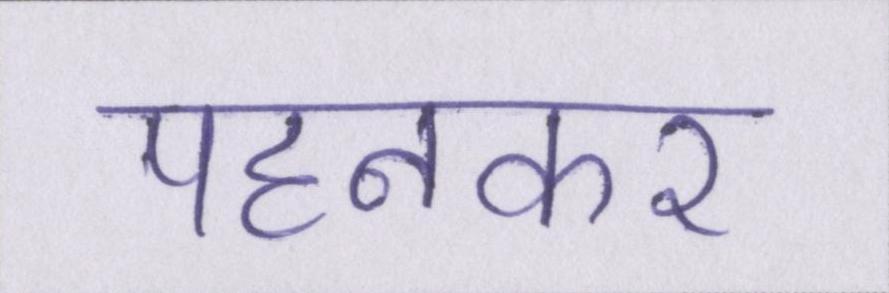 पहनकर